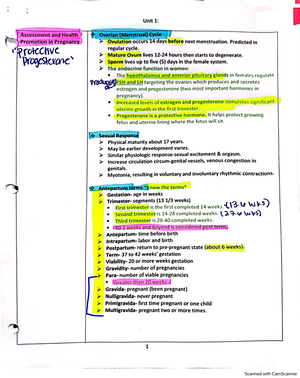 Unit 1:
Assessment and Health
Promotion in Pregnancy
"Protective
Progesterone"
Ovarian (Menstrual) Cycle
Ovulation occurs 14 days before next menstruation. Predicted in
regular cycle.
Mature Ovum lives 12-24 hours then starts to degenerate.
Sperm lives up to five (5) days in the female system.
The endocrine function in women:
The hypothalamus and anterior pituitary glands in females regulate
FSH and LH targeting the ovaries which produces and secretes
estrogen and progesterone (two most important hormones in
pregnancy).
Increased levels of estrogen and progesterone stimulates significant
uterine growth in the first trimester.
Progesterone is a protective hormone. It helps protect growing
fetus and uterine lining where the fetus will sit.
Sexual Response
Physical maturity about 17 years.
May be earlier development varies.
Similar physiologic response-sexual excitement & orgasm.
Increase circulation circum-genital vessels, venous congestion in
genitals.
Myotonia, resulting in voluntary and involuntary rhythmic contractions.
Antepartum terms *know the terms*
Gestation- age in weeks
Trimester- segments (13 1/3 weeks)
First trimester is the first completed 14 weeks. (13.6 wks)
Second trimester is 14-28 completed weeks. (27.6 wks)
Third trimester is 28-40 completed weeks.
40.1 weeks and beyond is considered post term.
Antepartum- time before birth
Intrapartum- labor and birth
Postpartum- return to pre-pregnant state (about 6 weeks).
Term- 37 to 42 weeks' gestation
Viability- 20 or more weeks gestation
Gravidity- number of pregnancies
Para- number of viable pregnancies
Greater than 20 weeks
Gravida- pregnant (been pregnant)
Nulligravida- never pregnant
Primigravida- first time pregnant or one child
Multigravida- pregnant two or more times.
1
Scanned with CamScanner